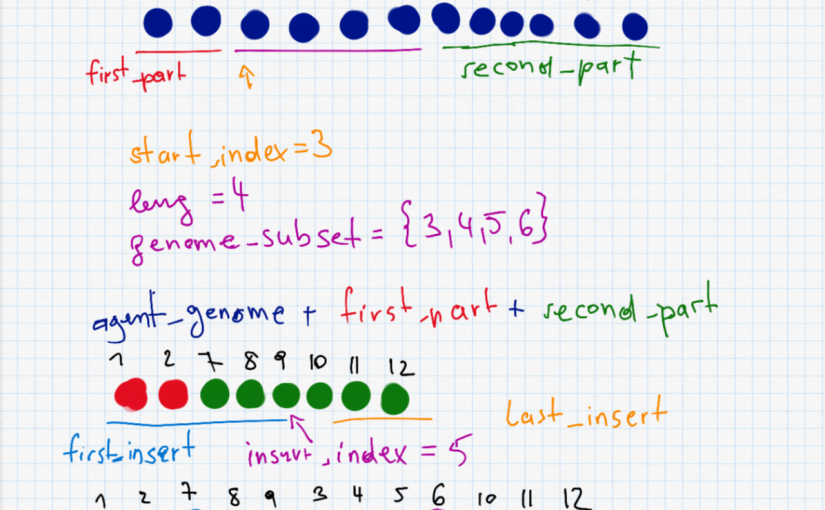 first_part
second_part
start_index=3
leng = 4
genome_subset = {3,4,5,6}
agent_genome + first_part + second_part
1 2 7 8 9 10 11 12
last_insert
first_insert insert_index = 5
1 2 7 8 9 3 4 5 6 10 11 12